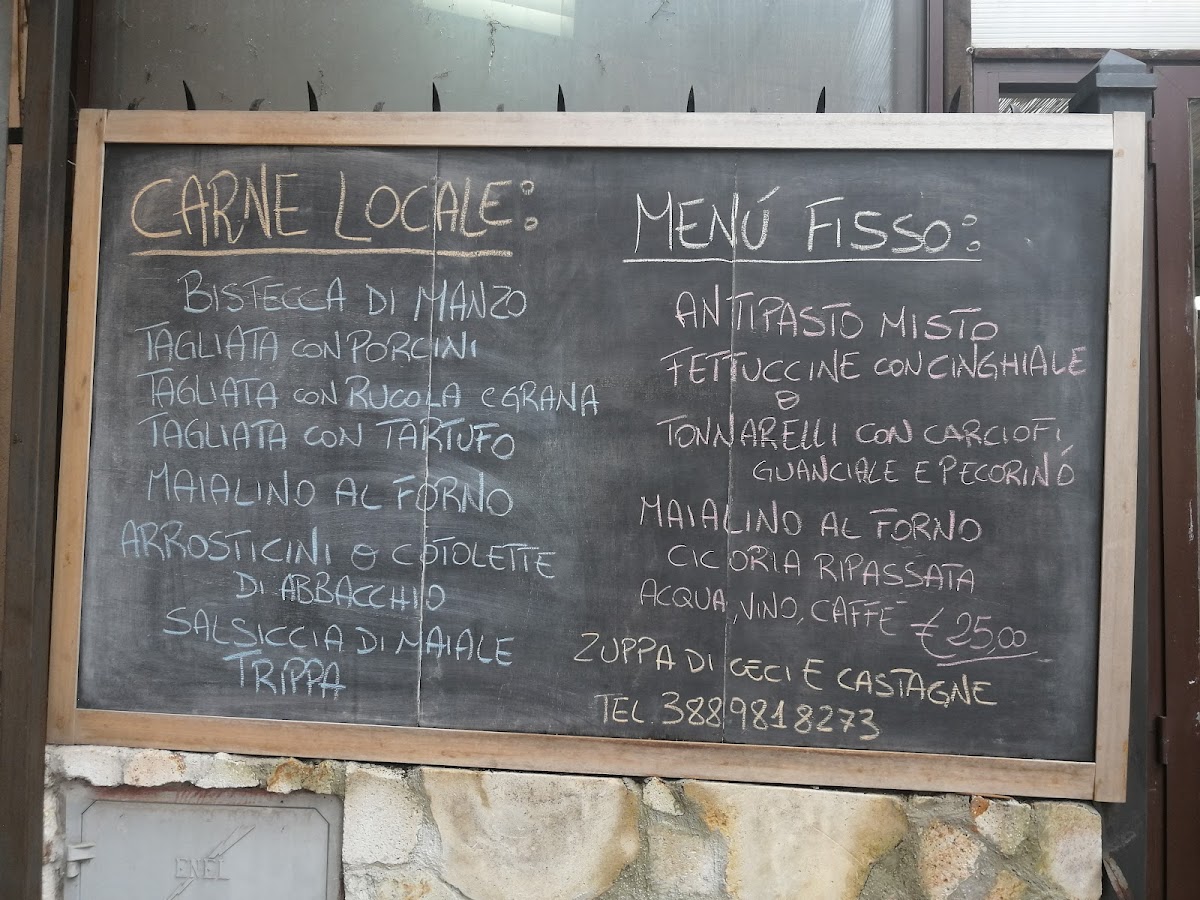 CARNE LOCALE:
BISTECCA DI MANZO
TAGLIATA CON PORCINI
TAGLIATA CON RUCOLA e GRANA
TAGLIATA CON TARTUFO
MAIALINO AL FORNO
ARROSTICINI O COTOLETTE
DI ABBACCHIO
SALSICCIA DI MAIALE
TRIPPA
MENÚ FISSO:
ANTIPASTO MISTO
FETTUCCINE CON CINGHIALE
O
TONNARELLI CON CARCIOFI
GUANCIALE E PECORINO
MAIALINO AL FORNO
CICORIA RIPASSATA
ACQUA, VINO, CAFFE € 25,00
ZUPPA DI CECI E CASTAGNE
TEL. 3889818273
ENEL